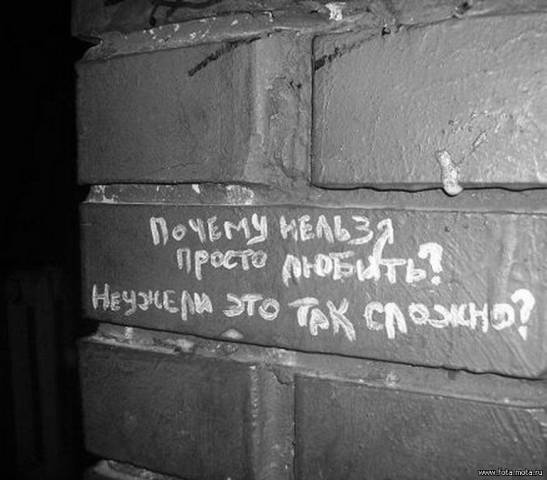 Почему нельзя
просто любить?
Неужели это так сложно?
www.fota.mota.ru